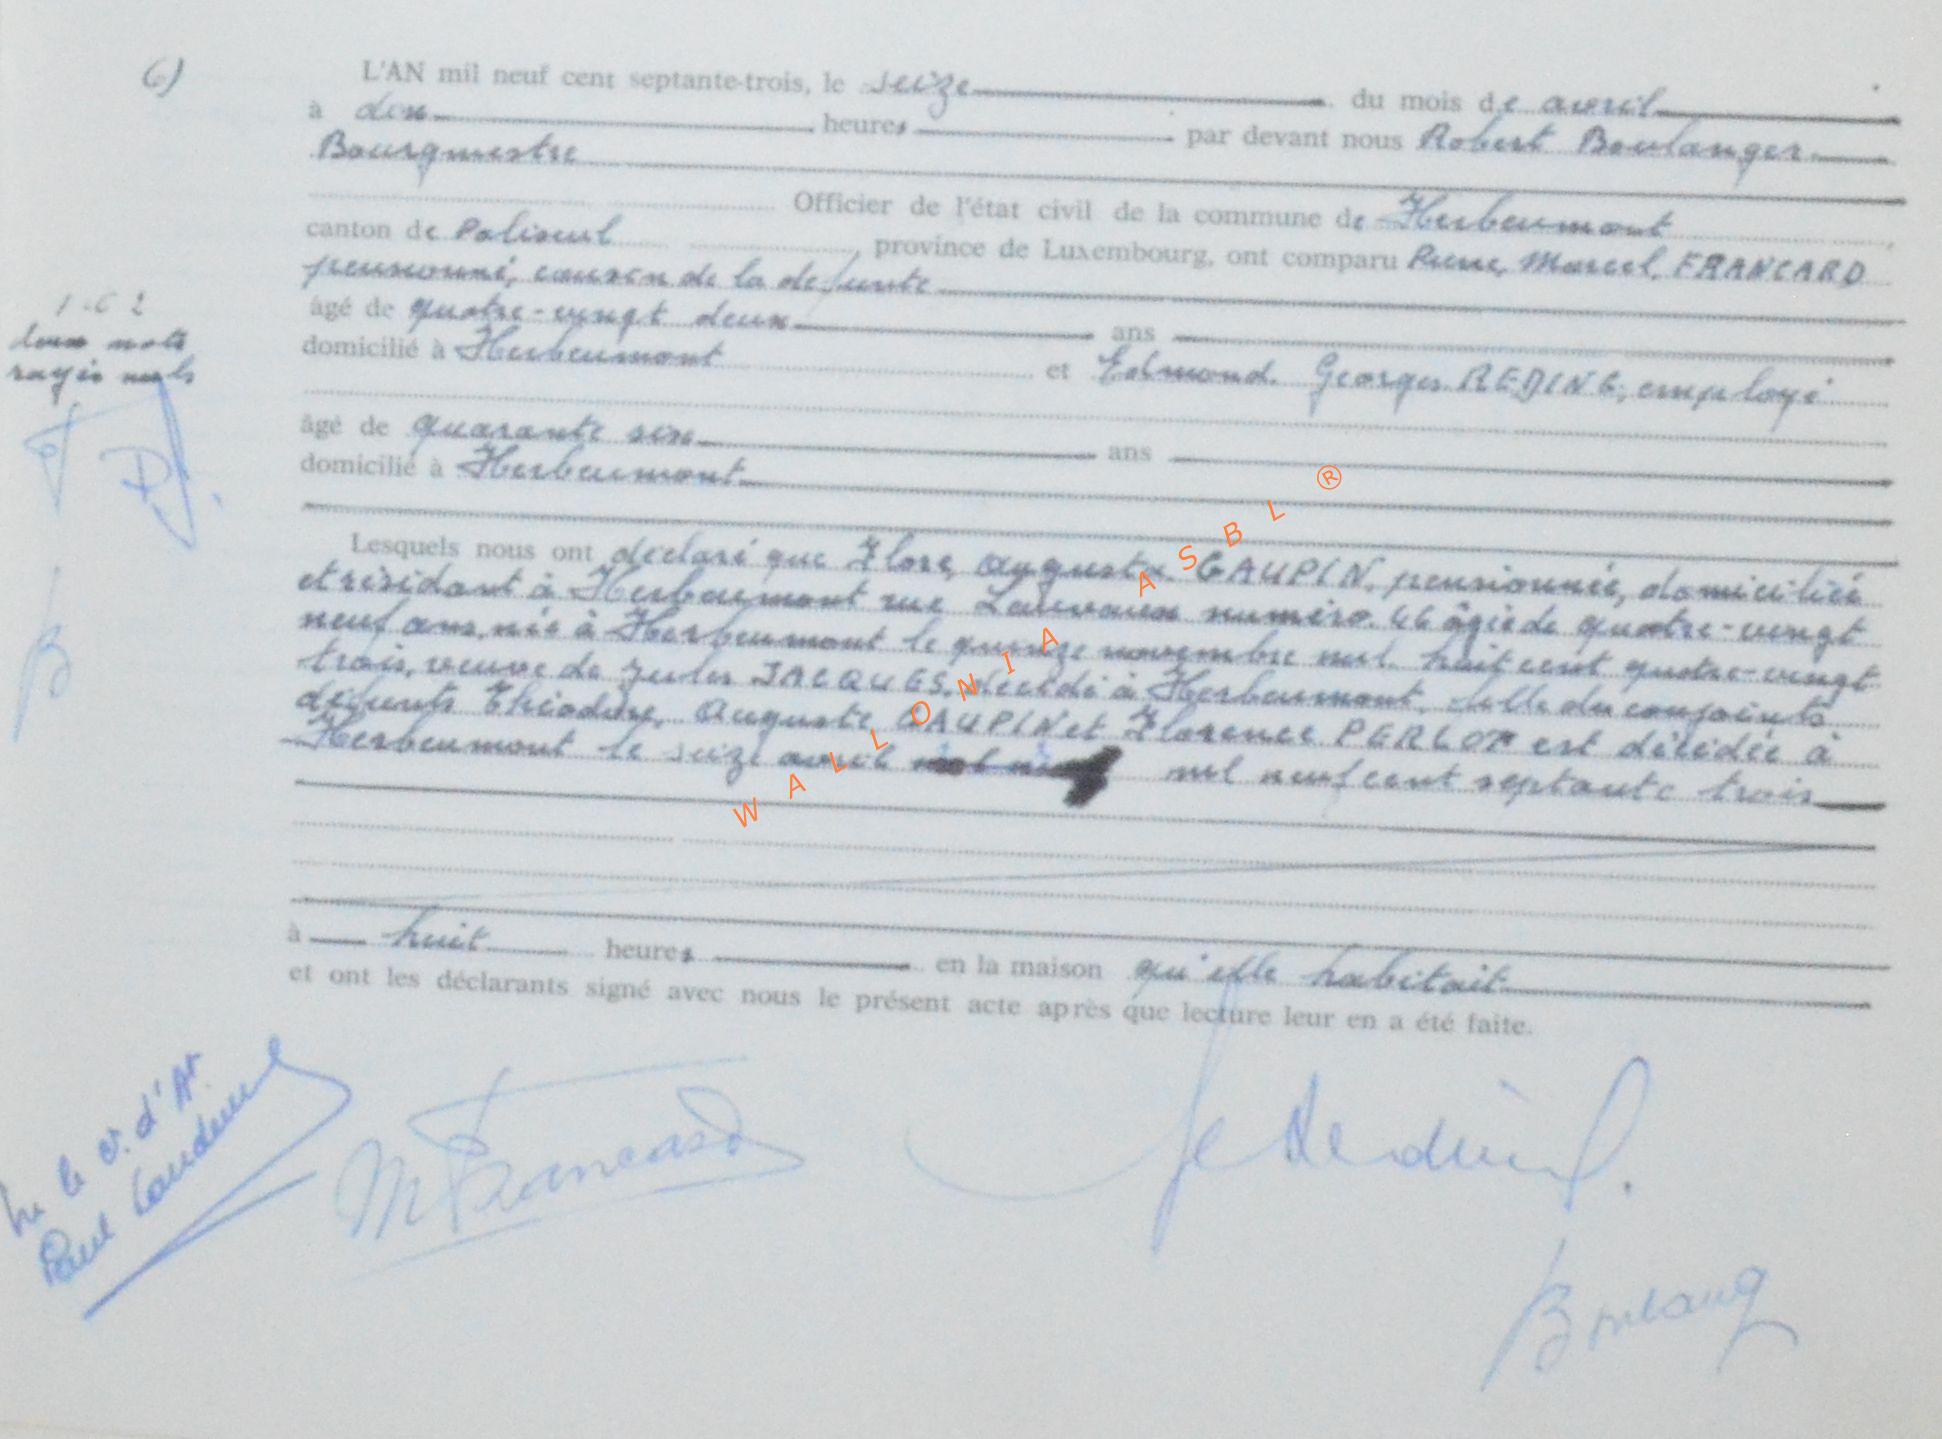 6)
L'AN mil neuf cent septante-trois, le seize du mois de avril
à dix heures par devant nous Robert Boulanger
Bourgmestre
Officier de l'état civil de la commune de Herbeumont
canton de Paliseul, province de Luxembourg, ont comparu Pierre, Marcel, FRANCARD
pensionné, cousin de la defunte
âgé de quatre-vingt deux ans
domicilié à Herbeumont et Edmond, Georges REDING, employé
âgé de quarante six ans
domicilié à Herbeumont
deux mots
rayés nuls
Lesquels nous ont déclaré que Flore, Augusta GAUPIN, pensionnée, domiciliée
et résidant à Herbeumont rue Lauvaux numéro 46 âgée de quatre-vingt
neuf ans, née à Herbeumont le quinze novembre mil huit cent quatre-vingt
trois, veuve de Jules JACQUES, décédé à Herbeumont, fille du conjoints
défunts Théodore, Auguste GAUPIN et Florence PERLOT est décédée à
Herbeumont le seize avril mil neuf cent septante trois
à huit heures en la maison qu'elle habitait
et ont les déclarants signé avec nous le présent acte après que lecture leur en a été faite.
WALLONIA ASBL ®
M Francard
Boulang